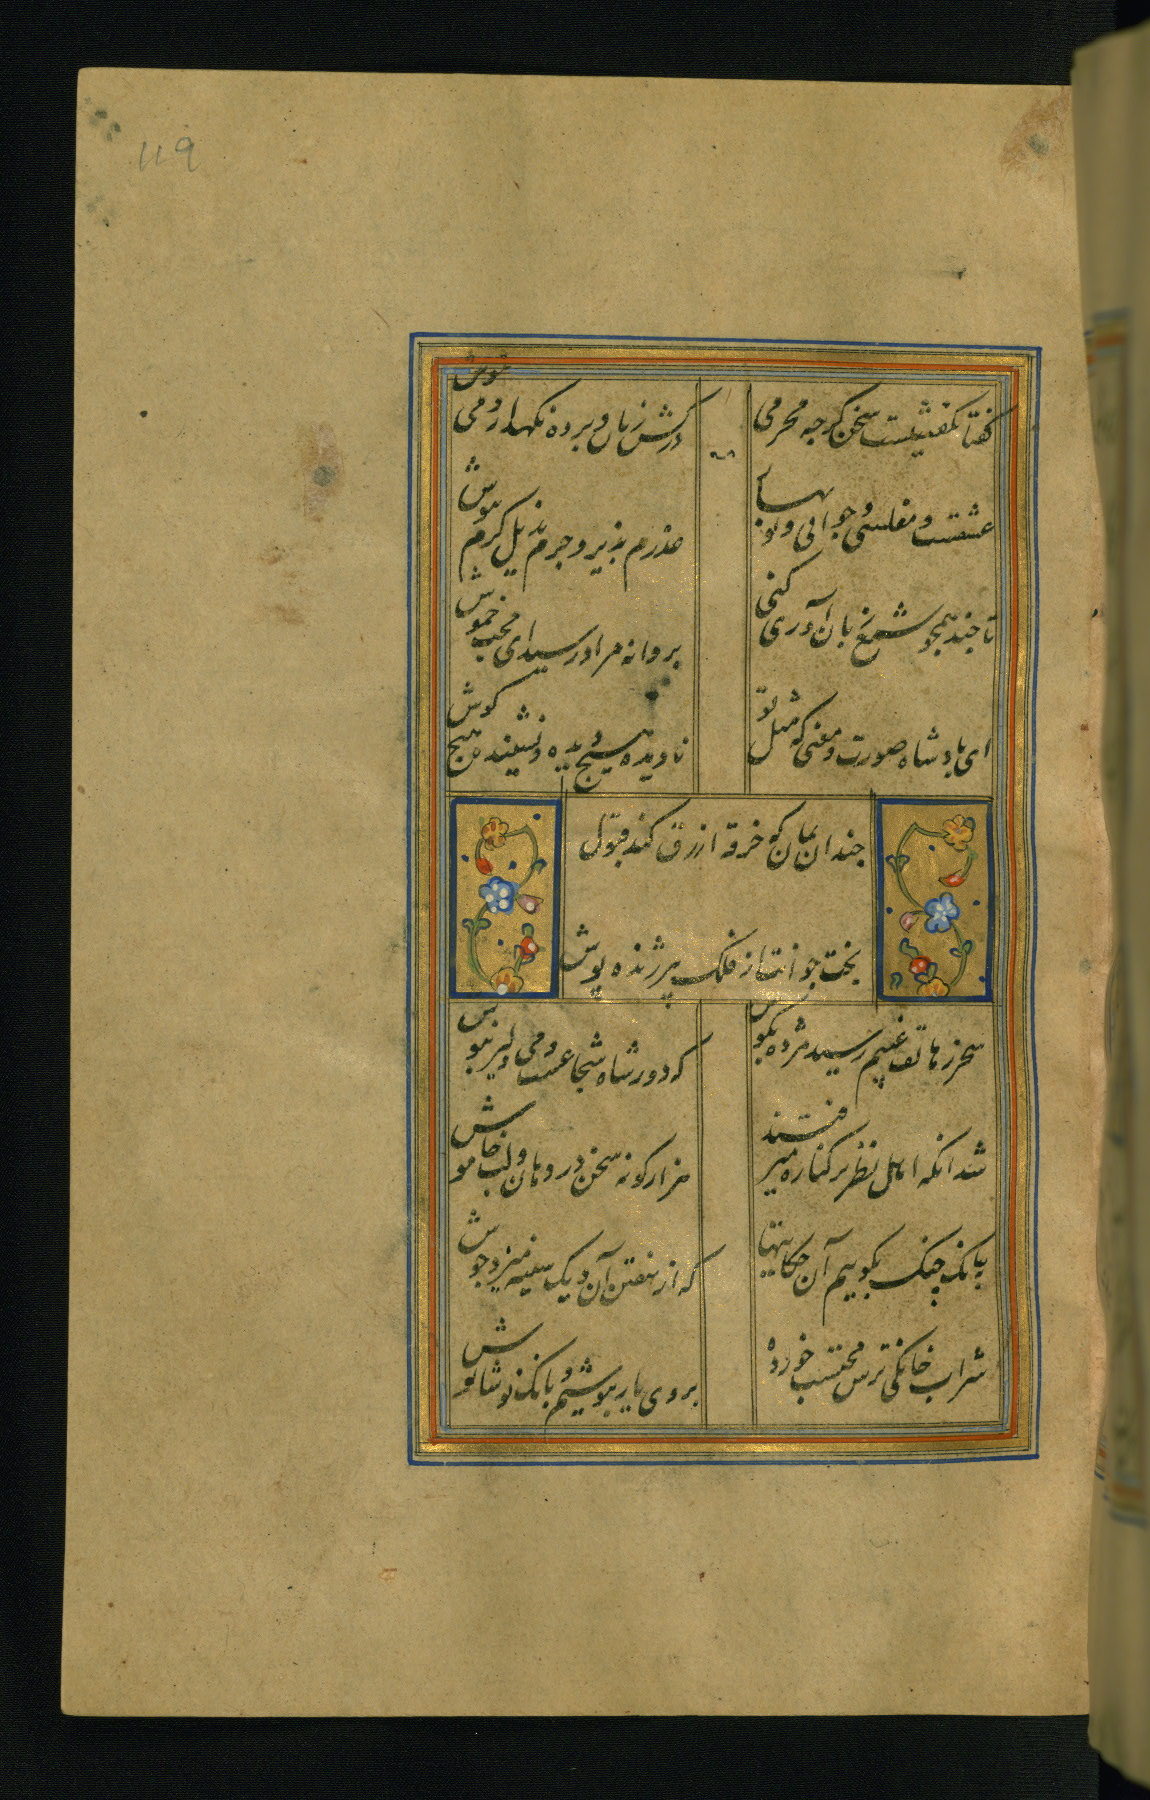 119
گفتا نگفتنیست سخن گرچه محرمی
درکش زبان و پرده نگهدار و می نوش
عشقست و مفلسی و جوانی و نوبهار
عذرم پذیر و جرم بذیل کرم بپوش
تا چند همچو شمع زبان آوری کنی
پروانه مراد رسید ای محب خموش
ای پادشاه صورت و معنی که مثل تو
نادیده هیچ دیده و نشنیده هیچ گوش
چندان بمان که خرقه ازرق کند قبول
بخت جوانت از فلک پیر ژنده پوش
سحر ز هاتف غیبم رسید مژده بگوش
که دور شاه شجاعست و می دلیر بنوش
شد آنکه اهل نظر بر کناره میرفتند
هزار گونه سخن در دهان و لب خاموش
ببانگ چنگ بگوییم آن حکایتها
که از نهفتن آن دیگ سینه میزد جوش
شراب خانگی ترس محتسب خورده
بروی یار بنوشیم و بانگ نوشانوش